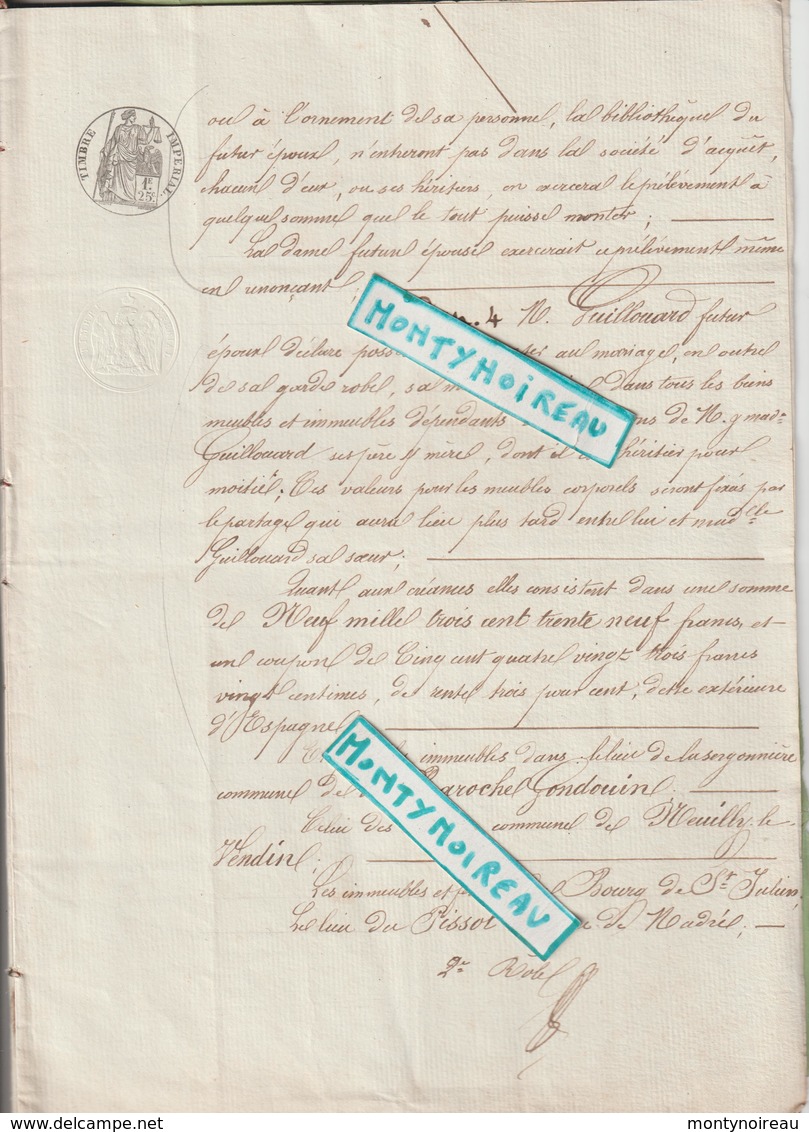 TIMBRE IMPERIAL
1F.
25c.
ou à l'ornement de sa personne, la bibliothèque du
futur époux, n'entreront pas dans la société d'acquêt,
chacun d'eux, ou ses héritiers, en exercera le prélèvement à
quelque somme que le tout puisse monter;
La dame future épouse exercerait ce prélèvement même
en renonçant;
4 M. Guillouard futur
époux déclare au mariage, en outre
de sa garde robe, sa dans tous les biens
meubles et immeubles dépendants de M. y mad.e
Guillouard ses père y mère, dont il héritier pour
moitié; Ces valeurs pour les meubles corporels seront fixés par
le partage qui aura lieu plus tard entre lui et mad.lle
Guillouard sa sœur;
Quant aux créances elles consistent dans une somme
de Neuf mille trois cent trente neuf francs, et
un coupon de Cinq cent quatre vingt trois francs
vingt centimes, de rente trois pour cent, dette extérieure
d'Espagne
immeubles dans: le lieu de
commune de Baroche Gondouin.
Le lieu des commune de Neuilly-le-
Vendin;
Les immeubles et Bourg de St. Julien,
Le lieu du Pissot de Madré;
2e Rôle
MONTYNOIREAU
MONTYNOIREAU
Delcampe.net
montynoireau